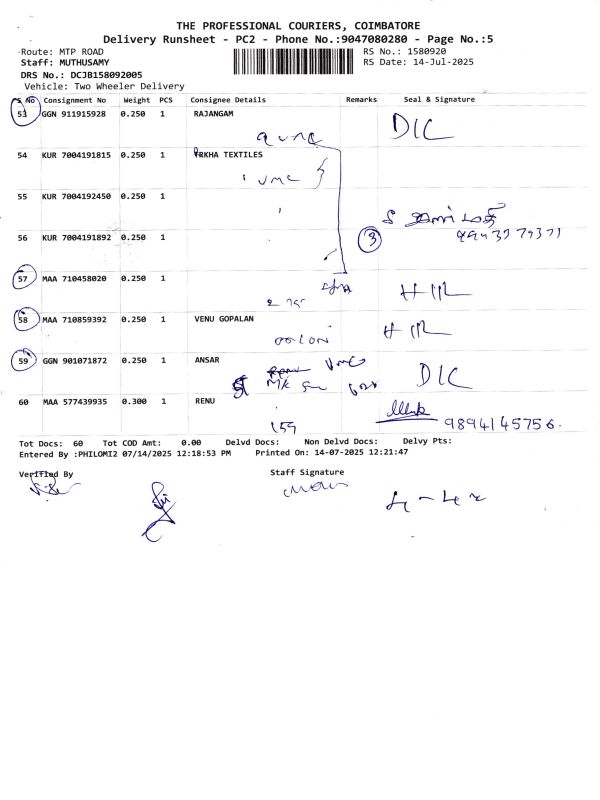 THE PROFESSIONAL COURIERS, COIMBATORE
Delivery Runsheet - PC2 - Phone No.:9047080280 - Page No.:5
Route: MTP ROAD RS No.: 1580920
Staff: MUTHUSAMY RS Date: 14-Jul-2025
DRS No.: DCJB158092005
Vehicle: Two Wheeler Delivery
S No Consignment No Weight PCS Consignee Details Remarks Seal & Signature
53 GGN 911915928 0.250 1 RAJANGAM
DIC
54 KUR 7004191815 0.250 1 PRKHA TEXTILES
55 KUR 7004192450 0.250 1
56 KUR 7004191892 0.250 1
3
57 MAA 710458020 0.250 1
58 MAA 710859392 0.250 1 VENU GOPALAN
59 GGN 901071872 0.250 1 ANSAR
DIC
60 MAA 577439935 0.300 1 RENU
159 9894145756.
Tot Docs: 60 Tot COD Amt: 0.00 Delvd Docs: Non Delvd Docs: Delvy Pts:
Entered By :PHILOMI2 07/14/2025 12:18:53 PM Printed On: 14-07-2025 12:21:47
Verified By Staff Signature